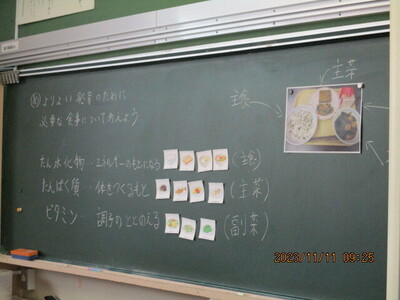 よりよい発育のために
必要な食事について考えよう
主食
主菜
たん水化物…エネルギーのもとになる (主食)
たんぱく質…体をつくるもと (主菜)
ビタミン…調子をととのえる (副菜)
2023/11/11 09:25